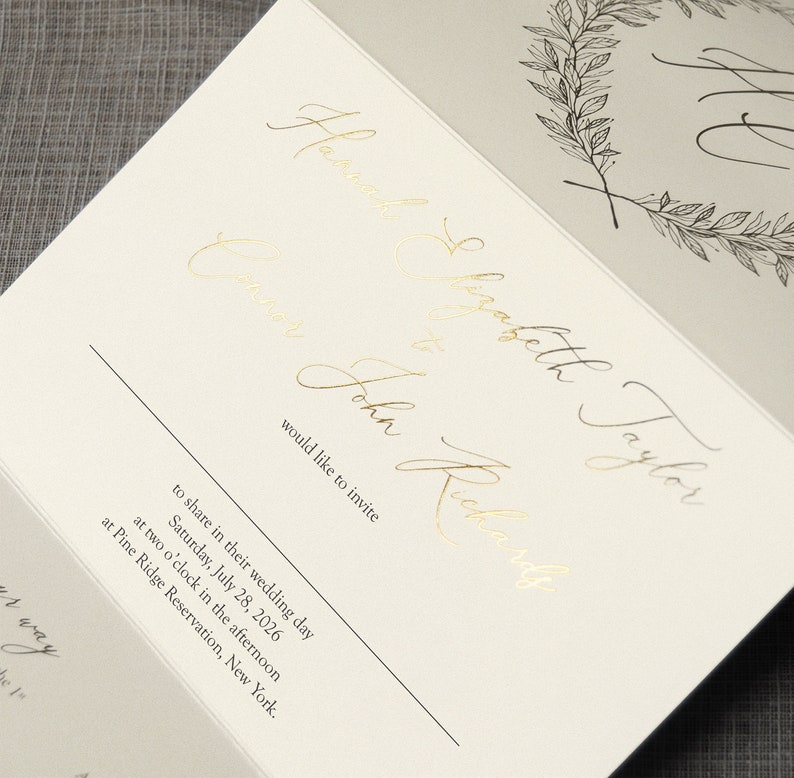 Hannah Elizabeth Taylor
to
Connor John Richards
would like to invite
to share in their wedding day
Saturday, July 28, 2026
at two o'clock in the afternoon
at Pine Ridge Reservation, New York.
way
1st